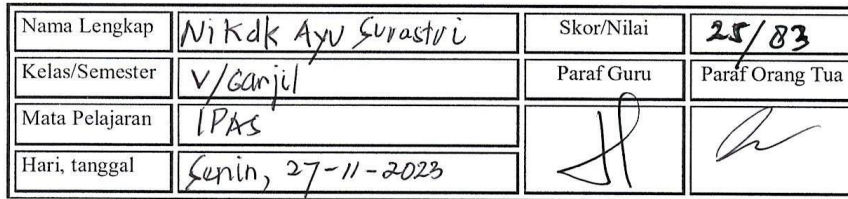 Nama Lengkap Ni Kdk Ayu Surastri Skor/Nilai 25/83
Kelas/Semester V/Ganjil Paraf Guru Paraf Orang Tua
Mata Pelajaran IPAS
Hari, tanggal Senin, 27-11-2023